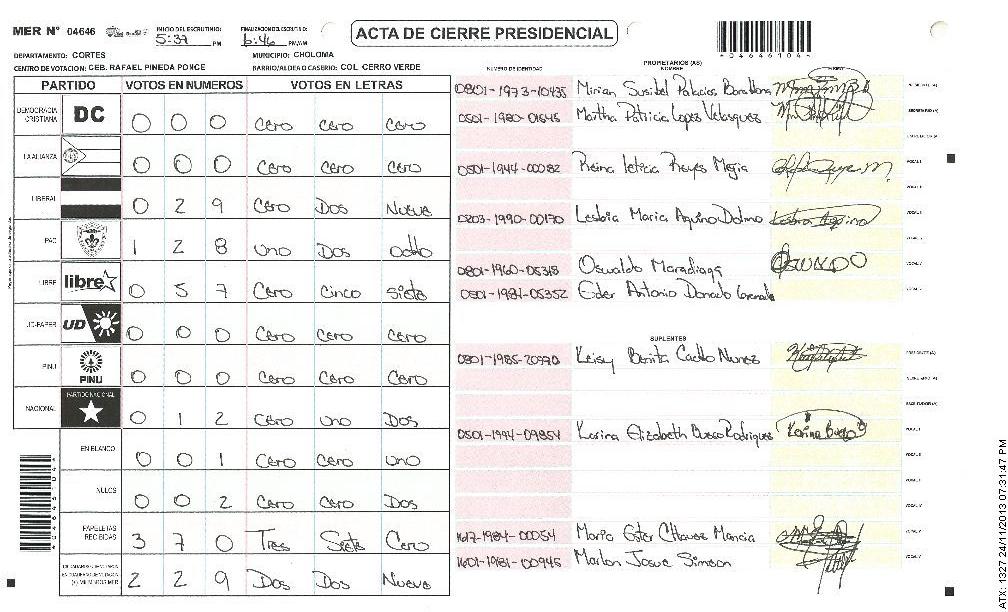 MER Nº 04646 INICIO DEL ESCRUTINIO: 5:39 PM FINALIZACION DEL ESCRUTINIO: 6:46 PM/AM
ACTA DE CIERRE PRESIDENCIAL
DEPARTAMENTO: CORTES MUNICIPIO: CHOLOMA
CENTRO DE VOTACION: CEB. RAFAEL PINEDA PONCE BARRIO/ALDEA O CASERIO: COL CERRO VERDE
PARTIDO VOTOS EN NUMEROS VOTOS EN LETRAS
DEMOCRACIA CRISTIANA DC 0 0 0 Cero Cero Cero
LA ALIANZA 0 0 0 Cero Cero Cero
LIBERAL 0 2 9 Cero Dos Nueve
PAC 1 2 8 Uno Dos Ocho
LIBRE libre 0 5 7 Cero Cinco Siete
UD-FAPER UD 0 0 0 Cero Cero Cero
PINU PINU 0 0 0 Cero Cero Cero
NACIONAL PARTIDO NACIONAL 0 1 2 Cero Uno Dos
EN BLANCO 0 0 1 Cero Cero Uno
NULOS 0 0 2 Cero Cero Dos
PAPELETAS RECIBIDAS 3 7 0 Tres Siete Cero
(+) MIEMBROS MER 2 2 9 Dos Dos Nueve
PROPIETARIOS (AS)
NUMERO DE IDENTIDAD NOMBRE
0801-1973-10435 Mirian Susibel Palacios
0501-1980-01645 Martha Patricia Lopez Velasquez
0501-1944-00082 Reina Leticia Reyes Mejia
0203-1990-00170 Lesbia Maria Aquino
0801-1960-05318 Oswaldo Maradiaga OSWALDO
0501-1984-05352 Eder Antonio Donado
SUPLENTES
0801-1985-20970 Keisy Benita Nunez
0501-1994-09854 Karina Elizabeth Bueso Rodriguez Karina Bueso
1617-1984-00054 Maria Ester Chavez Mancia
1601-1981-00945 Marlon Josue Simeon
ATX: 1327 24/11/2013 07:31:47 PM